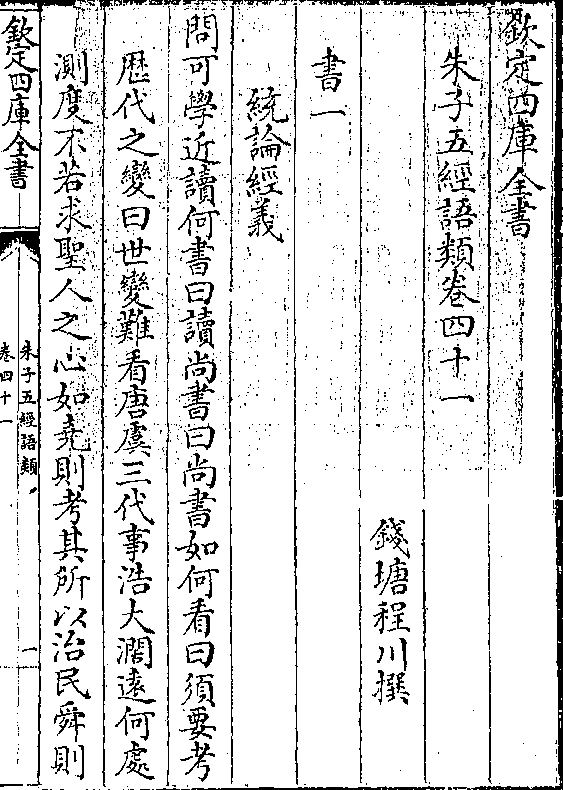 欽定四庫全書
朱子五經語類卷四十一
錢塘程川撰
書一
統論經義
問可學近讀何書曰讀尚書曰尚書如何看曰須要考
歴代之變曰世變難看唐虞三代事浩大濶逺何處
測度不若求聖人之心如堯則考其所以治民舜則
欽定四庫全書
朱子五經語類
卷四十一
一